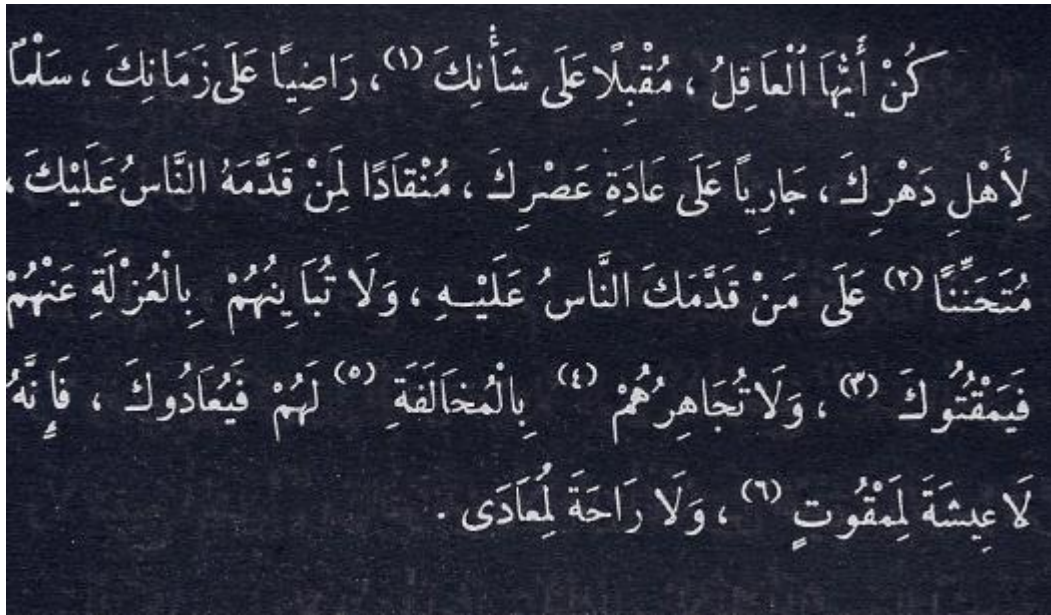 كُنْ أَيُّهَا ٱلْعَاقِلُ ، مُقْبِلًا عَلَى شَأْنِكَ (١) ، رَاضِيًا عَلَى زَمَانِكَ ، سَلْمًا
لِأَهْلِ دَهْرِكَ ، جَارِيًا عَلَى عَادَةِ عَصْرِكَ ، مُنْقَادًا لِمَنْ قَدَّمَهُ النَّاسُ عَلَيْكَ ،
مُتَحَنِّنًا (٢) عَلَى مَنْ قَدَّمَكَ النَّاسُ عَلَيْهِ ، وَلَا تُبَايِنْهُمْ بِالْعُزْلَةِ عَنْهُمْ
فَيَمْقُتُوكَ (٣) ، وَلَا تُجَاهِرْهُمْ (٤) بِالْمُخَالَفَةِ (٥) لَهُمْ فَيُعَادُوكَ ، فَإِنَّهُ
لَا عِيشَةَ لِمَمْقُوتٍ (٦) ، وَلَا رَاحَةَ لِمُعَادَى .